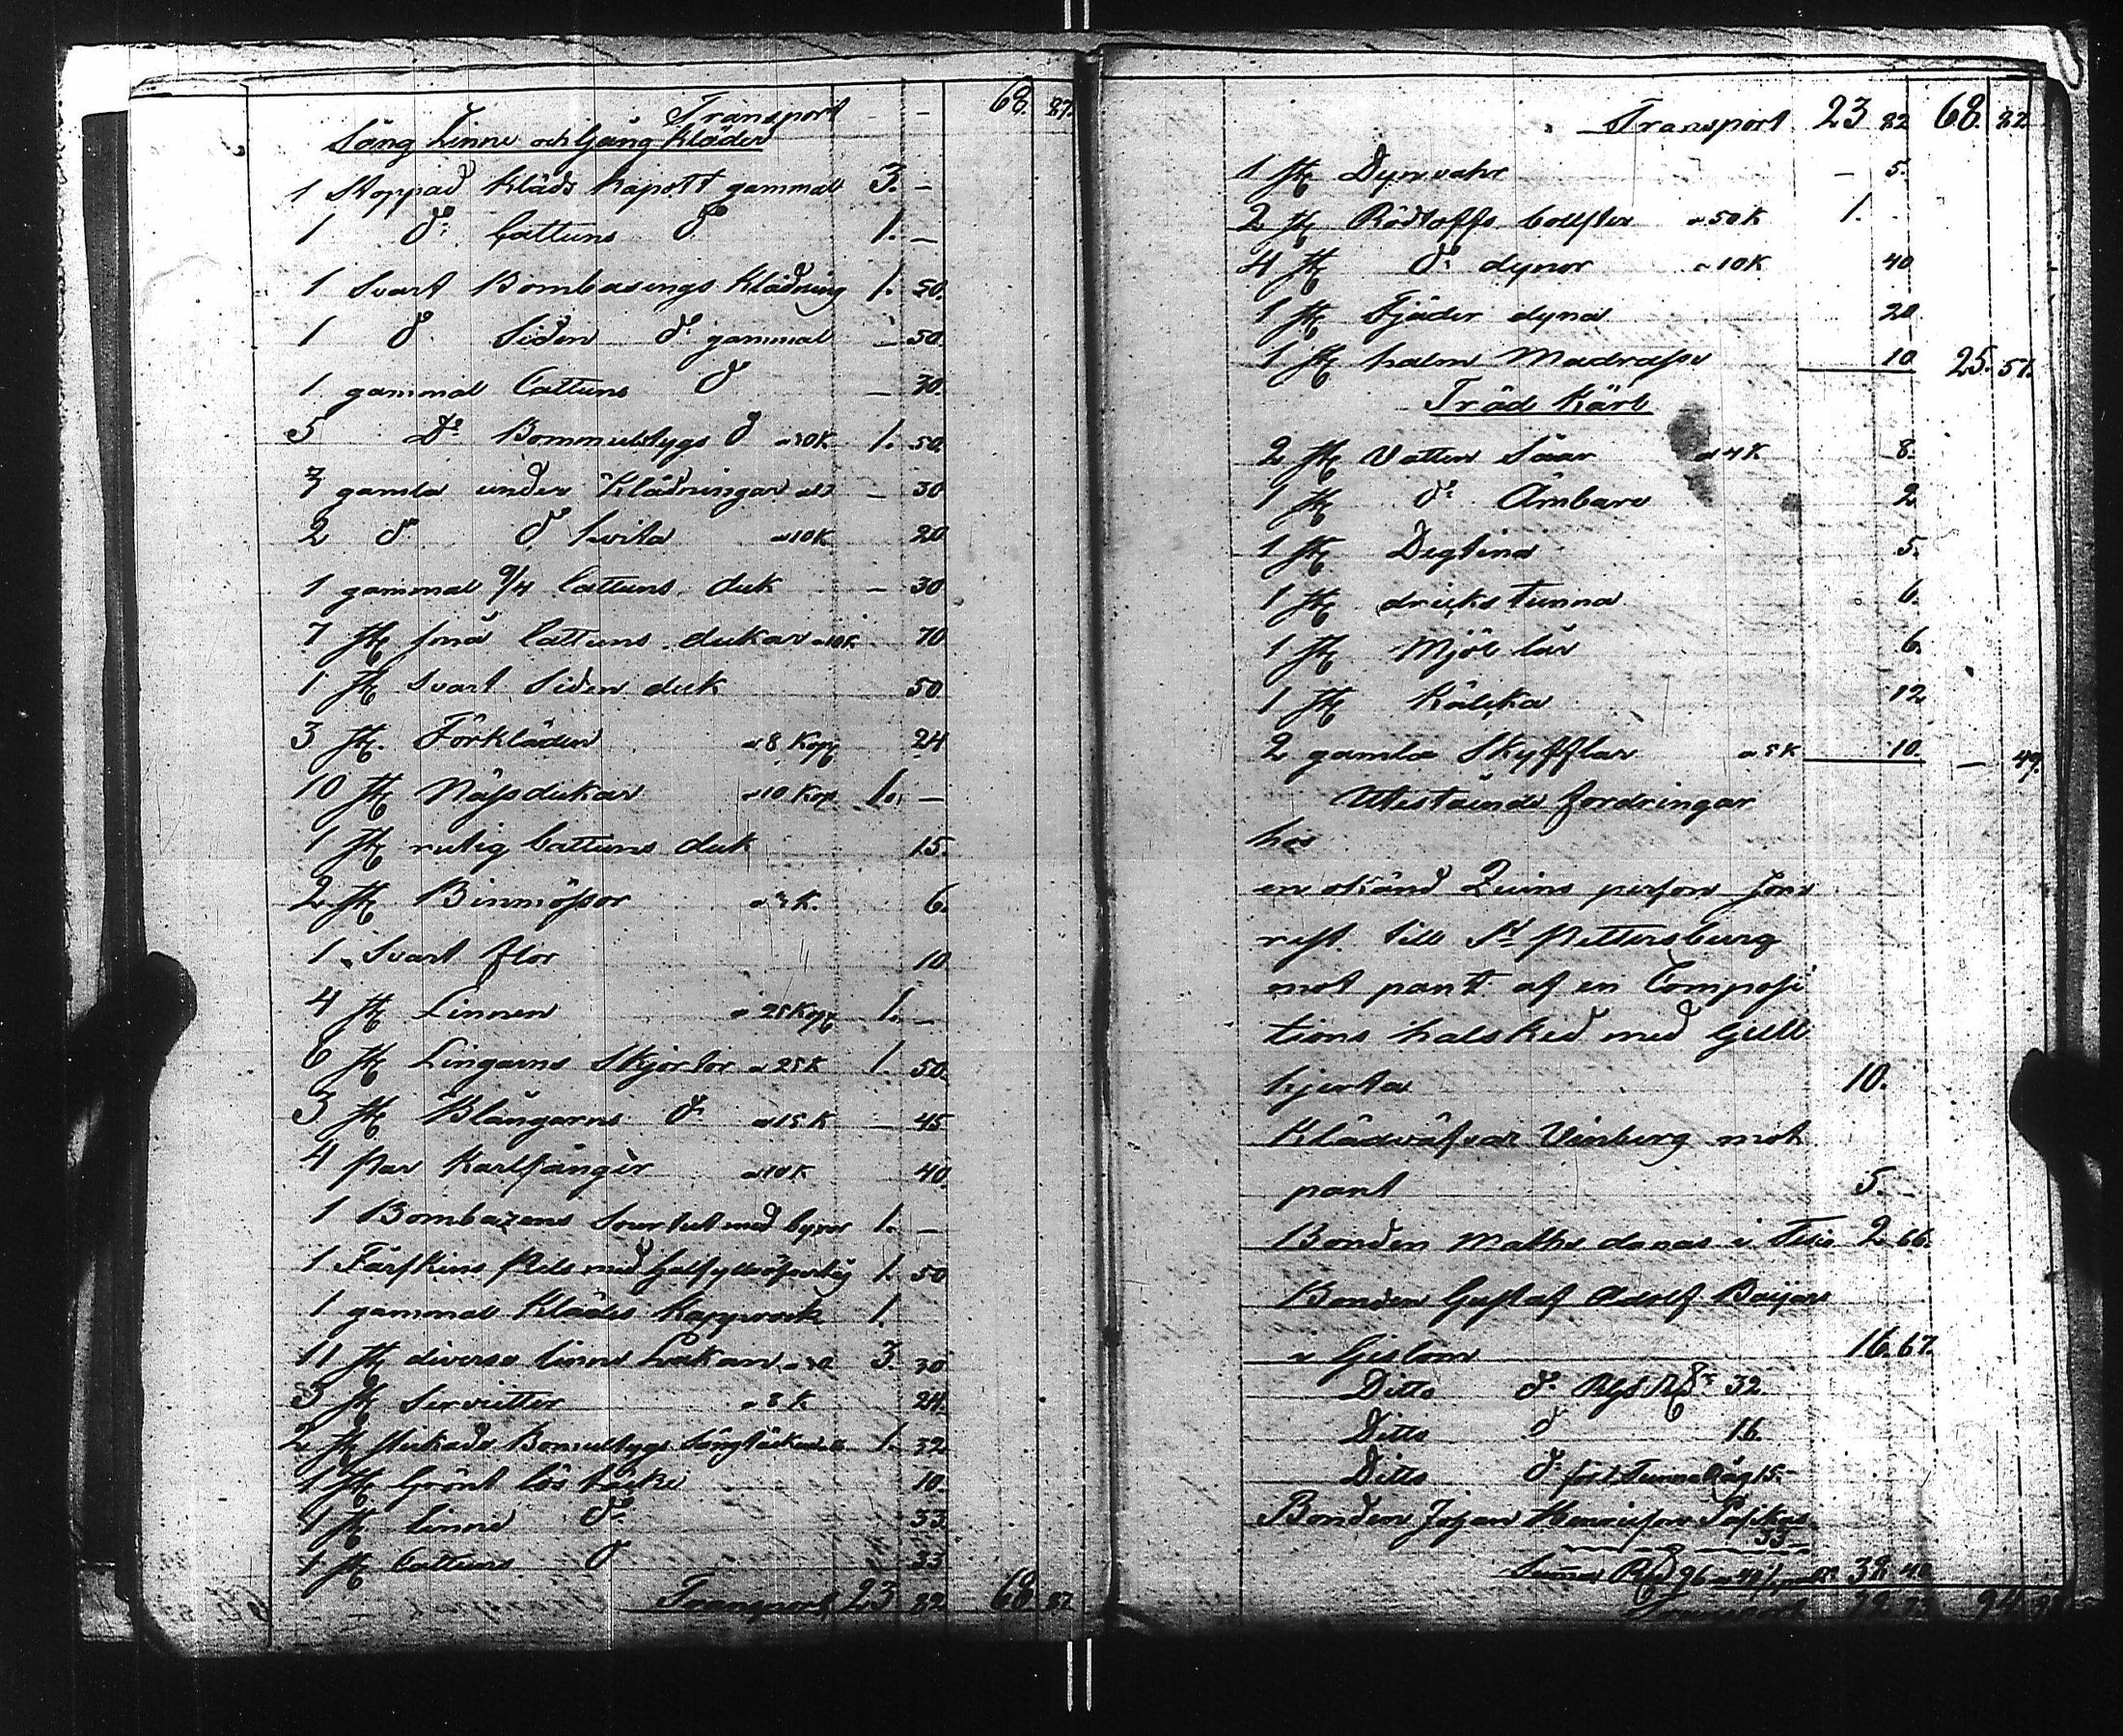 Transport - 68. 82.
Säng Linne och Gång Kläder
1 Stoppad Kläds Kapott gammal 3. -
1 d:o Cattuns d:o 1. -
1 Svart Bombasings Klädning 1. 50.
1 d:o Siden d:o gammal - 50.
1 gammal Cattuns d:o - 30.
5 D:o Bommulstygs d:o a 30 K 1. 50.
3 gamla under Klädningar - 30
2 d:o d:o hvita a 10 K 20
1 gammal 9/4 Cattuns duk - 30
7 St små Cattuns dukar a 10 K 70
1 St Svart Siden duk 50
3 St. Förkläden a 8 Kop 24
10 St Näsdukar a 10 Kop 1. -
1 St rutig Cattuns duk 15.
2 St Binmössor a 3 K. 6.
1 Svart flor 10
4 St Linnen a 25 Kop 1. -
6 St Lingarns Skjortor a 25 K 1. 50.
3 St Blångarns d:o a 15 K - 45
4 Par Karlhängèr a 10 K 40
1 Bombazens Sourtut med 1. -
1 Fårskins Pels med 1. 50
1 gammal Kläds Kapprock 1.
11 St diverse linne Lakan a 30 3. 30
3 St Servietter a 8 K 24.
2 St stickade Bomulstygs Sängtäcken 1. 32
1 St Grönt lös täcke 10.
1 St linne d:o 33
1 St Cattuns d:o 33
Transport 23 82 68. 82
Transport 23 82 68. 82
1 St Dynvahr - 5.
2 St Rödtofls bolster a 50 K 1.
4 St d:o dynor a 10 K 40
1 St Fjäder dyna 20
1 St halm Madrass 10 25. 57.
Träd Kärl
2 St Vatten Såar a 4 K 8.
1 St d:o Ämbare 2
1 St Degtina 5.
1 St dricks tunna 6.
1 St Mjöl lår 6.
1 St Kälcka 12
2 gamla Skyfflar a 5 K 10. - 49.
Utestående fordringar
hos
en okänd Quins person som
rest till S:t Pettersburg
mot pant af en Composi
tions halsked med Gull
hjerta 10.
Klädväfvar Vinberg mot
pant 5.
Bonden Maths danas i 2 66.
Bonden Gustaf Adolf
i Gislom 16. 67.
Ditto d:o 32
Ditto d:o 16.
Ditto d:o för 1 Tunna Råg 15.
Bonden Johan Henricson
33
Summa 96 38 40
Transport